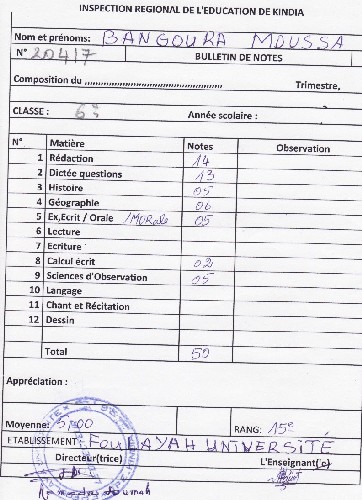 INSPECTION REGIONAL DE L'EDUCATION DE KINDIA
Nom et prénoms: BANGOURA MOUSSA
N° 20417 BULLETIN DE NOTES
Composition du ........................................ Trimestre,
CLASSE : 6è Année scolaire :
N° Matière Notes Observation
1 Rédaction 14
2 Dictée questions 13
3 Histoire 05
4 Géographie 06
5 Ex,Ecrit / Orale /MORale 05
6 Lecture
7 Ecriture
8 Calcul écrit 02
9 Sciences d'Observation 05
10 Langage
11 Chant et Récitation
12 Dessin
Total 50
Appréciation :
Moyenne: 5,00 RANG: 15e
ETABLISSEMENT: FOULAYAH UNIVERSITÉ
Directeur(trice) L'Enseignant(e)